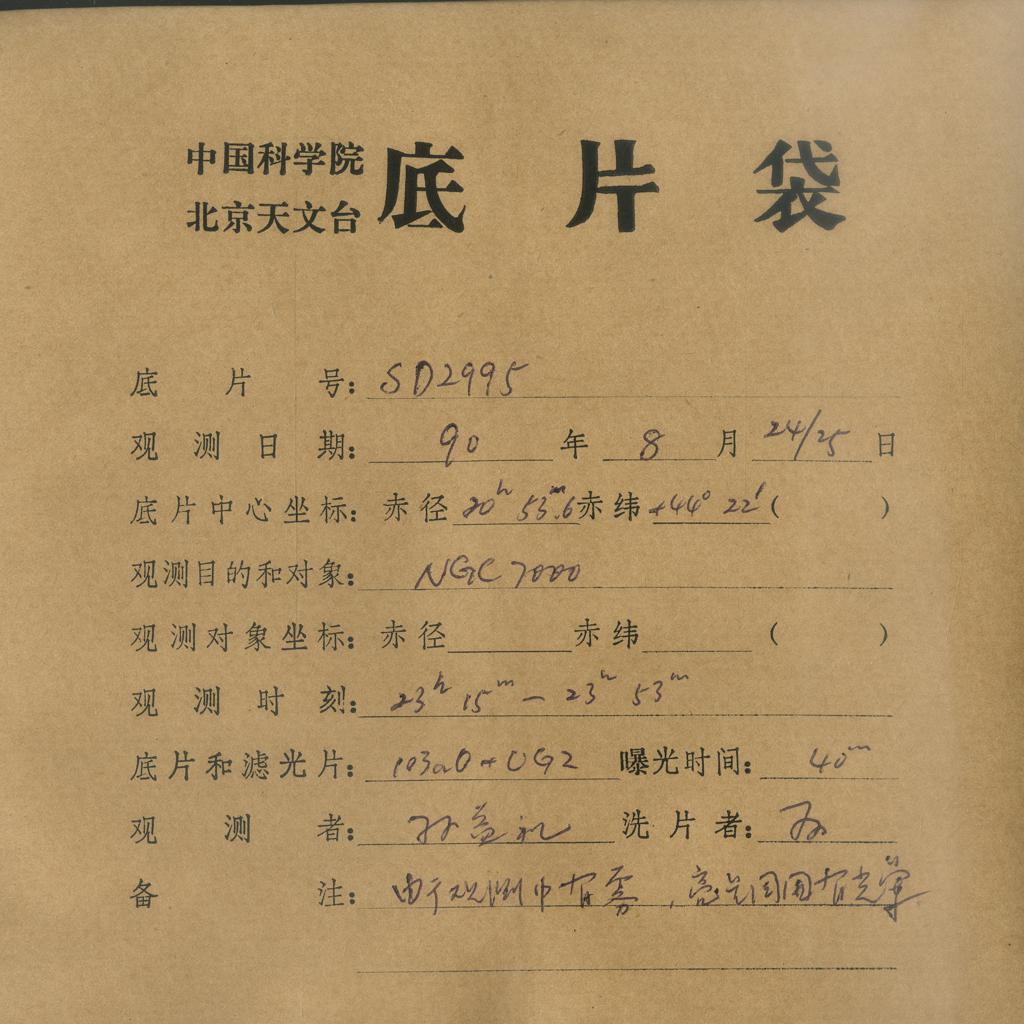 中国科学院
北京天文台
底片袋
底片号：SD2995
观测日期：90年8月24/25日
底片中心坐标：赤径20h 53m.6赤纬+44° 22′（ ）
观测目的和对象：NGC7000
观测对象坐标：赤径 赤纬 （ ）
观测时刻：23h 15m — 23h 53m
底片和滤光片：103aO+UG2 曝光时间：40m
观测者：孙益礼 洗片者：孙
备注：由于观测中有雾，亮星周围有光晕